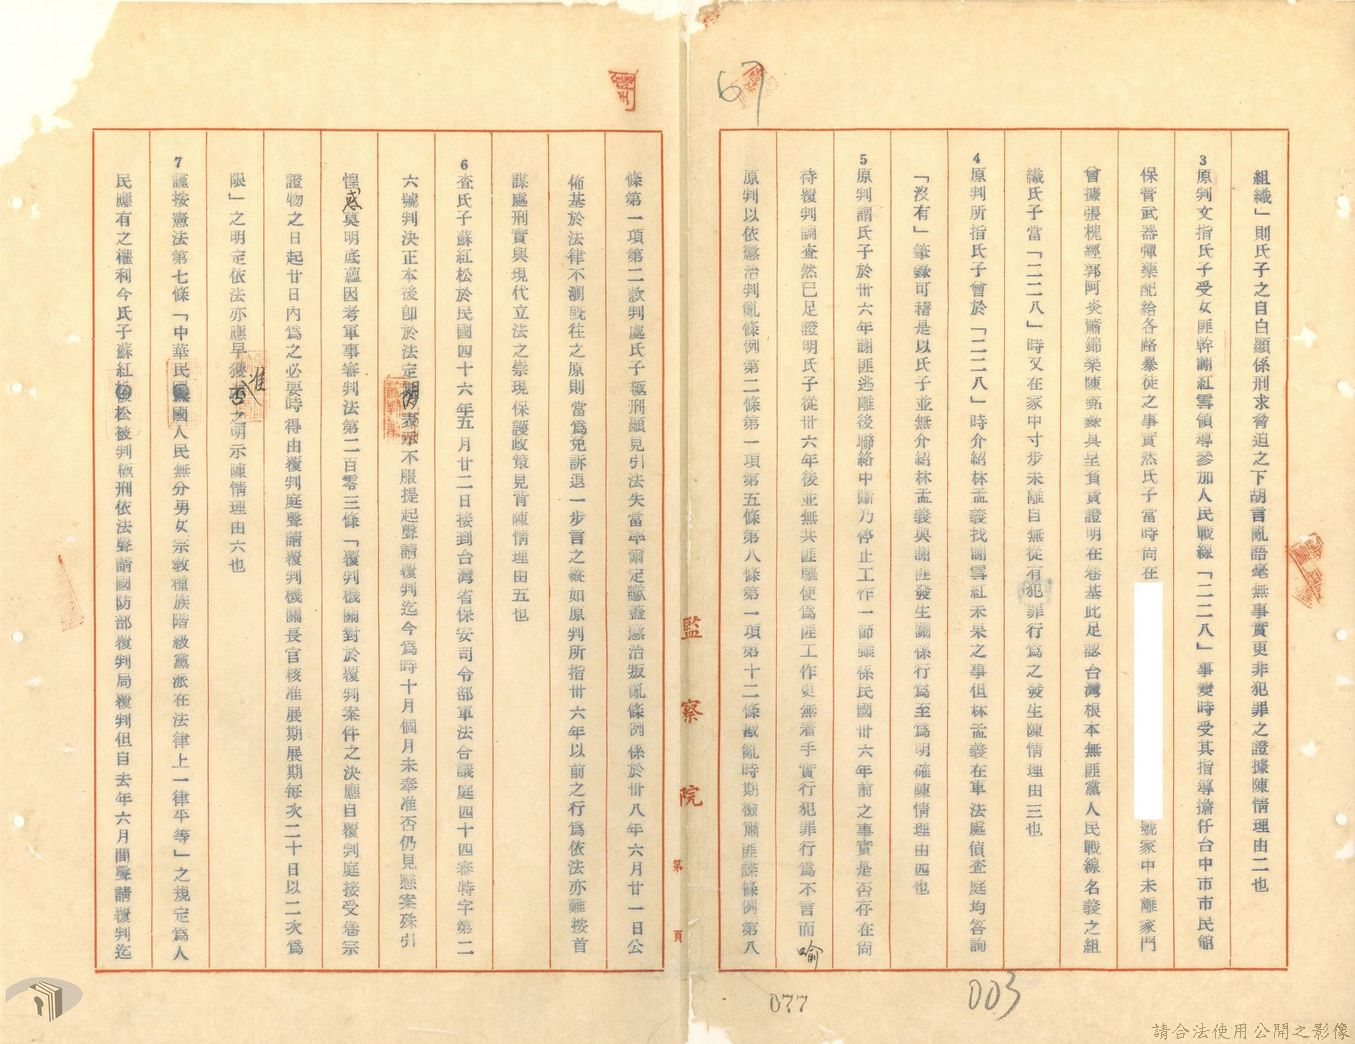 67
組織」則氏子之自白顯係刑求脅迫之下胡言亂語毫無事實更非犯罪之證據陳情理由二也
3原判文指氏子受女匪幹謝紅雪領導參加人民戰線「二二八」事變時受其指導擔任台中市市民館
保管武器彈藥配給各路暴徒之事實然氏子當時尚在
號家中未離家門
曾據張槐經郭阿炎蕭錦樂陳銘錄具呈負責證明在卷基此足認台灣根本無匪黨人民戰線名義之組
織氏子當「二二八」時又在家中寸步未離自無從有犯罪行為之發生陳情理由三也
4原判所指氏子曾於「二二八」時介紹林孟義找謝雪紅未果之事但林孟義在軍法處偵查庭均答詢
「沒有」筆錄可稽是以氏子並無介紹林孟義與謝匪發生關係行為至為明確陳情理由四也
5原判謂氏子於卅六年謝匪逃離後聯絡中斷乃停止工作一節雖係民國卅六年前之事實是否存在尚
待覆判調查然已足證明氏子從卅六年後並無共匪驅使為匪工作更無着手實行犯罪行為不言而喻
原判以依懲治判亂條例第二條第一項第五條第八條第一項第十二條戡亂時期檢肅匪諜條例第八
077
003
監察院
第 頁
條第一項第二款判處氏子極刑顯見引法失當率爾定讞蓋懲治叛亂條例係於卅八年六月廿一日公
佈基於法律不溯既往之原則當為免訴退一步言之縱如原判所指卅六年以前之行為依法亦難按首
謀處刑實與現代立法之崇現保護政策見背陳情理由五也
6查氏子蘇紅松於民國四十六年五月廿二日接到台灣省保安司令部軍法合議庭四十四審特字第二
六號判決正本後卽於法定期內表示不服提起聲請覆判迄今為時十月個月未奉准否仍見懸案殊引
惶惑莫明底蘊因考軍事審判法第二百零三條「覆判機關對於覆判案件之決應自覆判庭接受卷宗
證物之日起廿日內為之必要時得由覆判庭聲請覆判機關長官核准展期展期每次二十日以二次為
限」之明定依法亦應早獲准否之明示陳情理由六也
7謹按憲法第七條「中華民國人民無分男女宗教種族階級黨派在法律上一律平等」之規定為人
民應有之權利今氏子蘇紅松被判極刑依法聲請國防部覆判局覆判但自去年六月間聲請覆判迄
請合法使用公開之影像